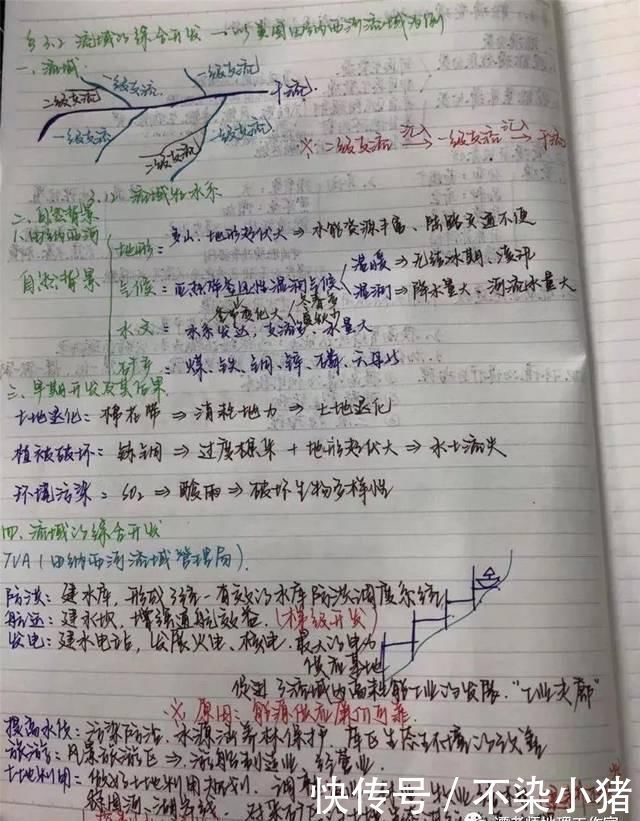 §3.2 流域的综合开发——以美国田纳西河流域为例
一.流域
一级支流 一级支流 干流
二级支流
一级支流 二级支流 一级支流
※ 二级支流 汇入→ 一级支流 汇入→ 干流
3.12 流域 水系
二.自然背景
1.田纳西河
自然背景
地形: 多山、地形起伏大⇒水能资源丰富、陆路交通不便
气候: 亚热带季风性湿润气候 温暖⇒无结冰期、凌汛
湿润⇒降水量大、河流水量大
季节变化大 冬春多 夏秋少
水文: 水系发达,支流多,水量大
矿产: 煤、铁、铜、锌、磷、云母
三.早期开发及其后果
土地退化: 棉花带⇒消耗地力⇒土地退化
植被破坏: 炼铜⇒过度樵采+地形起伏大⇒水土流失
环境污染: SO₂⇒酸雨⇒破坏生物多样性
四.流域的综合开发
TVA(田纳西河流域管理局).
防洪: 建水库,形成了统一有效的水库防洪调度系统
航运: 建水坝,增强通航效益.(梯级开发)
发电: 建水电站,发展火电、核电.最大的电力
供应基地
促进了流域内高耗能工业的发展."工业走廊"
※ 原因: 能源供应廉价可靠.
提高水质: 污染防治、水源涵养林保护、库区生态环境的改善
旅游: 风景旅游区⇒游船制造业、经营业.
土地利用= 做好土地利用规划、
快传号 / 不染小猪